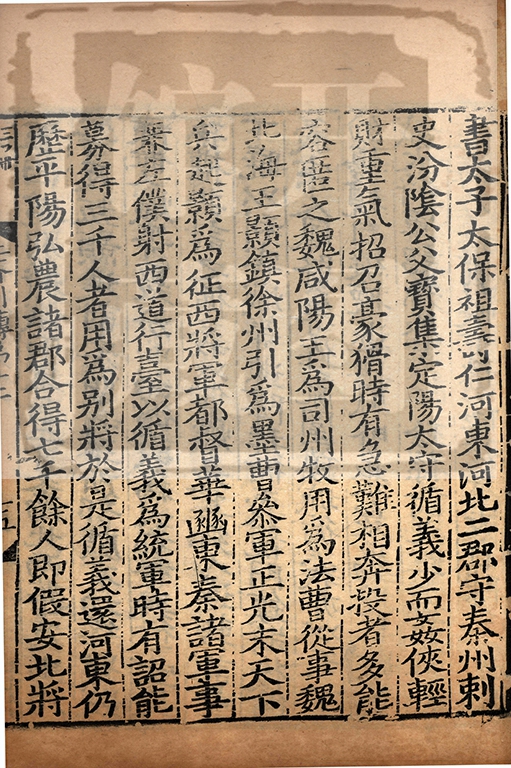 書太子太保祖壽仁河東河北二郡守秦州刺
史汾陰公父寶集定陽太守循義少而姦俠輕
財重氣招召豪猾時有急難相奔投者多能
容匿之魏咸陽王爲司州牧用爲法曹從事魏
北海王顥鎮徐州引爲墨曹叅軍正光末天下
兵起顥爲征西將軍都督華豳東秦諸軍事
兼左僕射西道行臺以循義爲統軍時有詔能
募得三千人者用爲别將於是循義還河東仍
歷平陽弘農諸郡合得七千餘人即假安北將